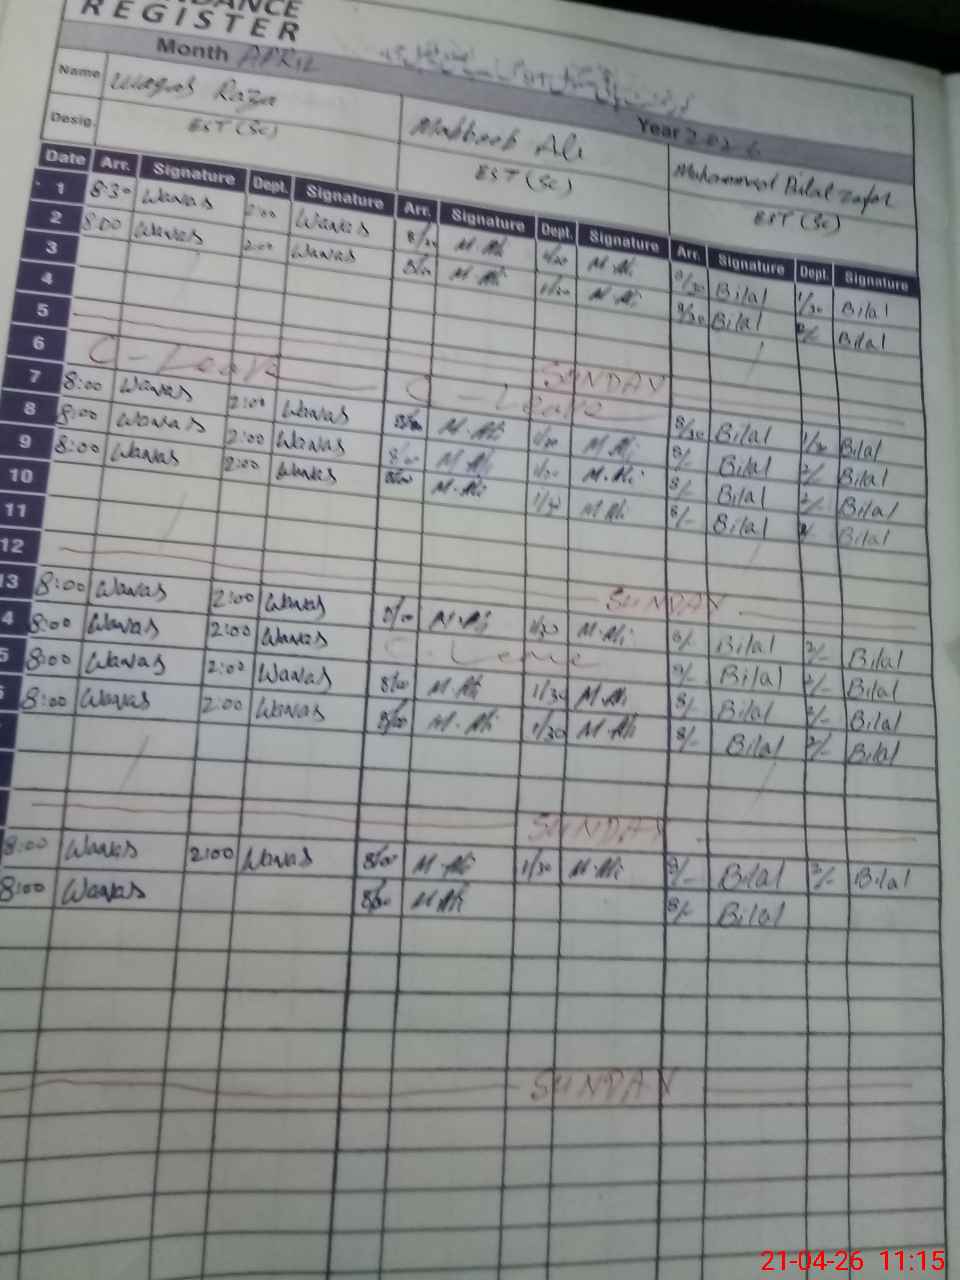 ATTENDANCE
REGISTER
Month APRIL
Year 2026
Name Waqas Raza Mahboob Ali Muhammad Bilal Zafar
Desig. EST (Sc) EST (Sc) EST (Sc)
Date Arr. Signature Dept. Signature Arr. Signature Dept. Signature Arr. Signature Dept. Signature
1 8:30 Wawas 2:00 Wawas 8/30 M.Ali M.Ali 8/30 Bilal 1/30 Bilal
2 8:00 Wawas 2:00 Wawas 8/00 M.Ali 1/30 M.Ali 8/30 Bilal 2/- Bilal
3
4
5 SUNDAY
6 C-Leave C-Leave 8/30 Bilal 1/30 Bilal
7 8:00 Wawas 2:00 Wawas 8/00 M.Ali 1/30 M.Ali 8/- Bilal 2/- Bilal
8 8:00 Wawas 2:00 Wawas 8/00 M.Ali 1/30 M.Ali 8/- Bilal 2/- Bilal
9 8:00 Wawas 2:00 Wawas 8/00 M.Ali 1/30 M.Ali 8/- Bilal 2/- Bilal
10
11
12 SUNDAY
13 8:00 Wawas 2:00 Wawas 8/00 M.Ali 1/30 M.Ali 8/- Bilal 2/- Bilal
4 8:00 Wawas 2:00 Wawas C-Leave 8/- Bilal 2/- Bilal
5 8:00 Wawas 2:00 Wawas 8/00 M.Ali 1/30 M.Ali 8/- Bilal 2/- Bilal
8:00 Wawas 2:00 Wawas 8/00 M.Ali 1/30 M.Ali 8/- Bilal 2/- Bilal
SUNDAY
8:00 Wawas 2:00 Wawas 8/00 M.Ali 1/30 M.Ali 8/- Bilal 2/- Bilal
8:00 Wawas 8/00 M.Ali 8/- Bilal
SUNDAY
21-04-26 11:15